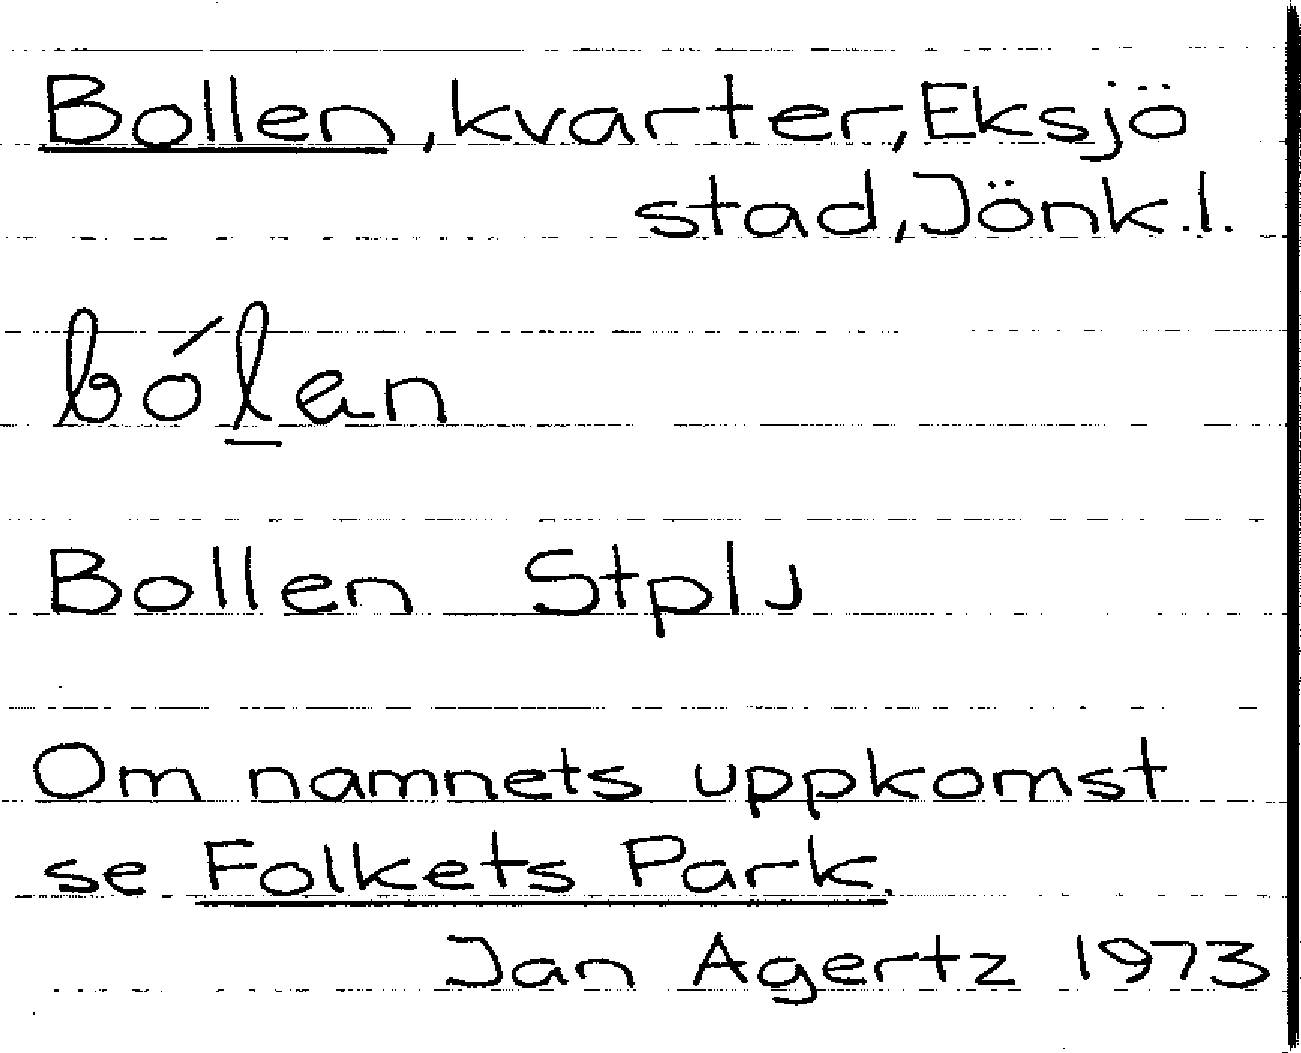 Bollen, kvarter, Eksjö
stad, Jönk. l.
bólan
Bollen StplJ
Om namnets uppkomst
se Folkets Park.
Jan Agertz 1973